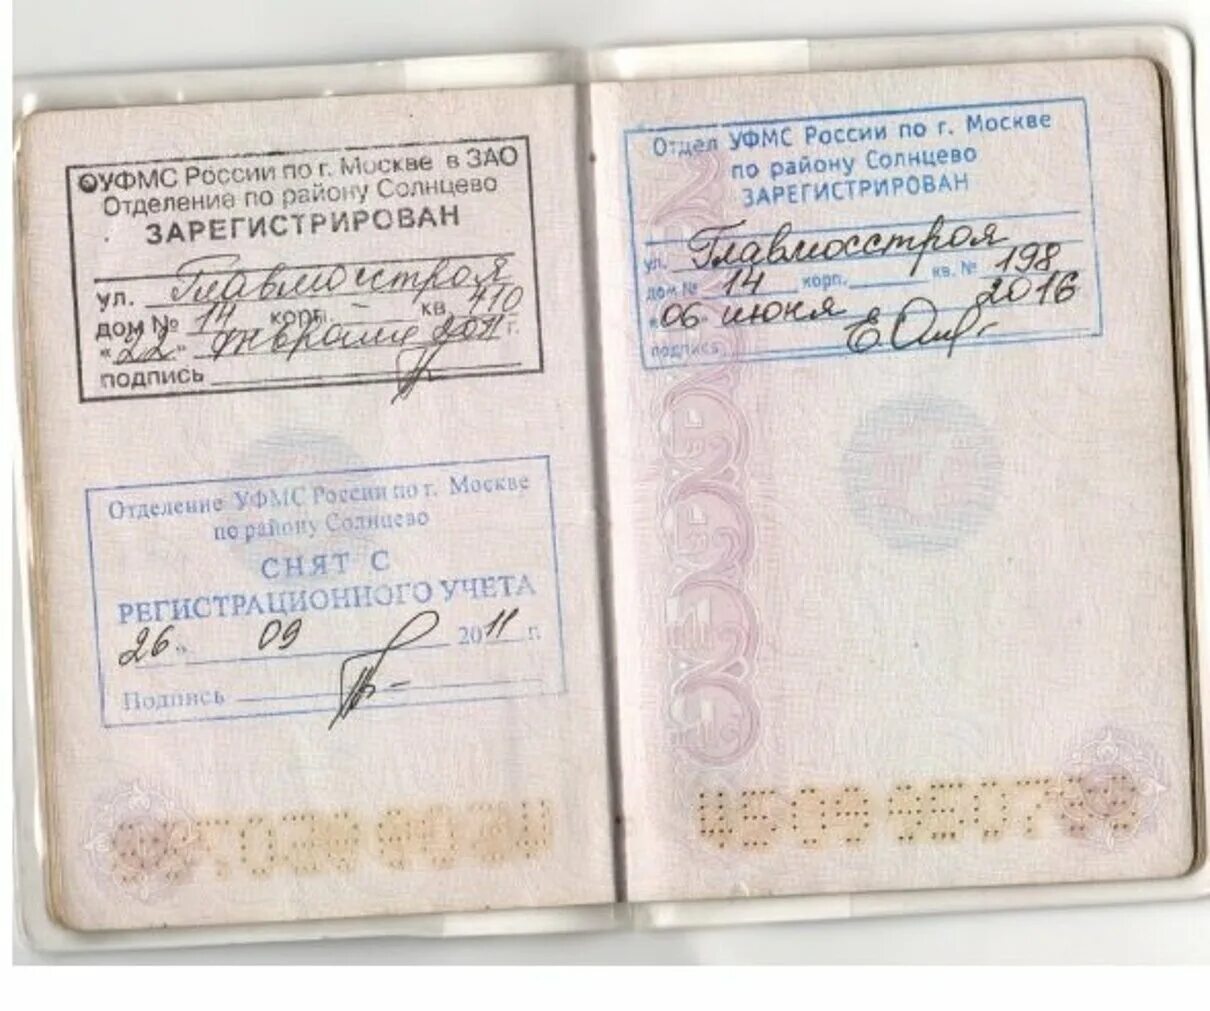 УФМС России по г. Москве в ЗАО
Отделение по району Солнцево
ЗАРЕГИСТРИРОВАН
ул. Главмосстроя
дом № 14 корп. – кв. 410
"22" февраля 2011 г.
подпись
Отделение УФМС России по г. Москве
по району Солнцево
СНЯТ С
РЕГИСТРАЦИОННОГО УЧЕТА
26 " 09 2011 г.
Подпись
Отдел УФМС России по г. Москве
по району Солнцево
ЗАРЕГИСТРИРОВАН
ул. Главмосстроя
дом № 14 корп. кв. № 198
"06" июня 2016
подпись